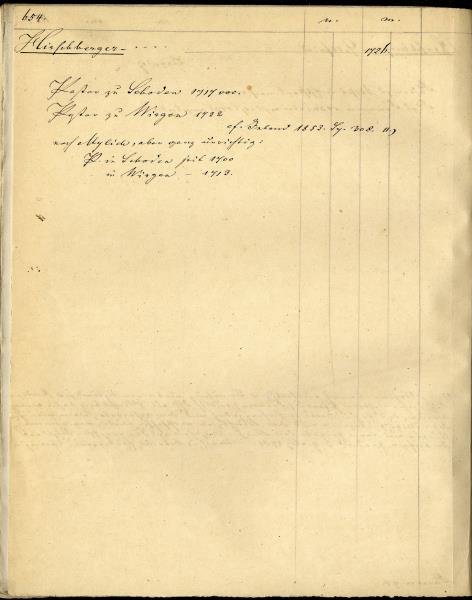 654.
n. m.
Hirschberger. – . . . . 1726.
Pastor zu Seboden 1717
Pastor zu Wirgen 1722
cf. Inland 1853. Sp. 308.
nach Mylich, aber ganz unrichtig:
P. in Seboden seit 1700
in Wirgen – 1713.